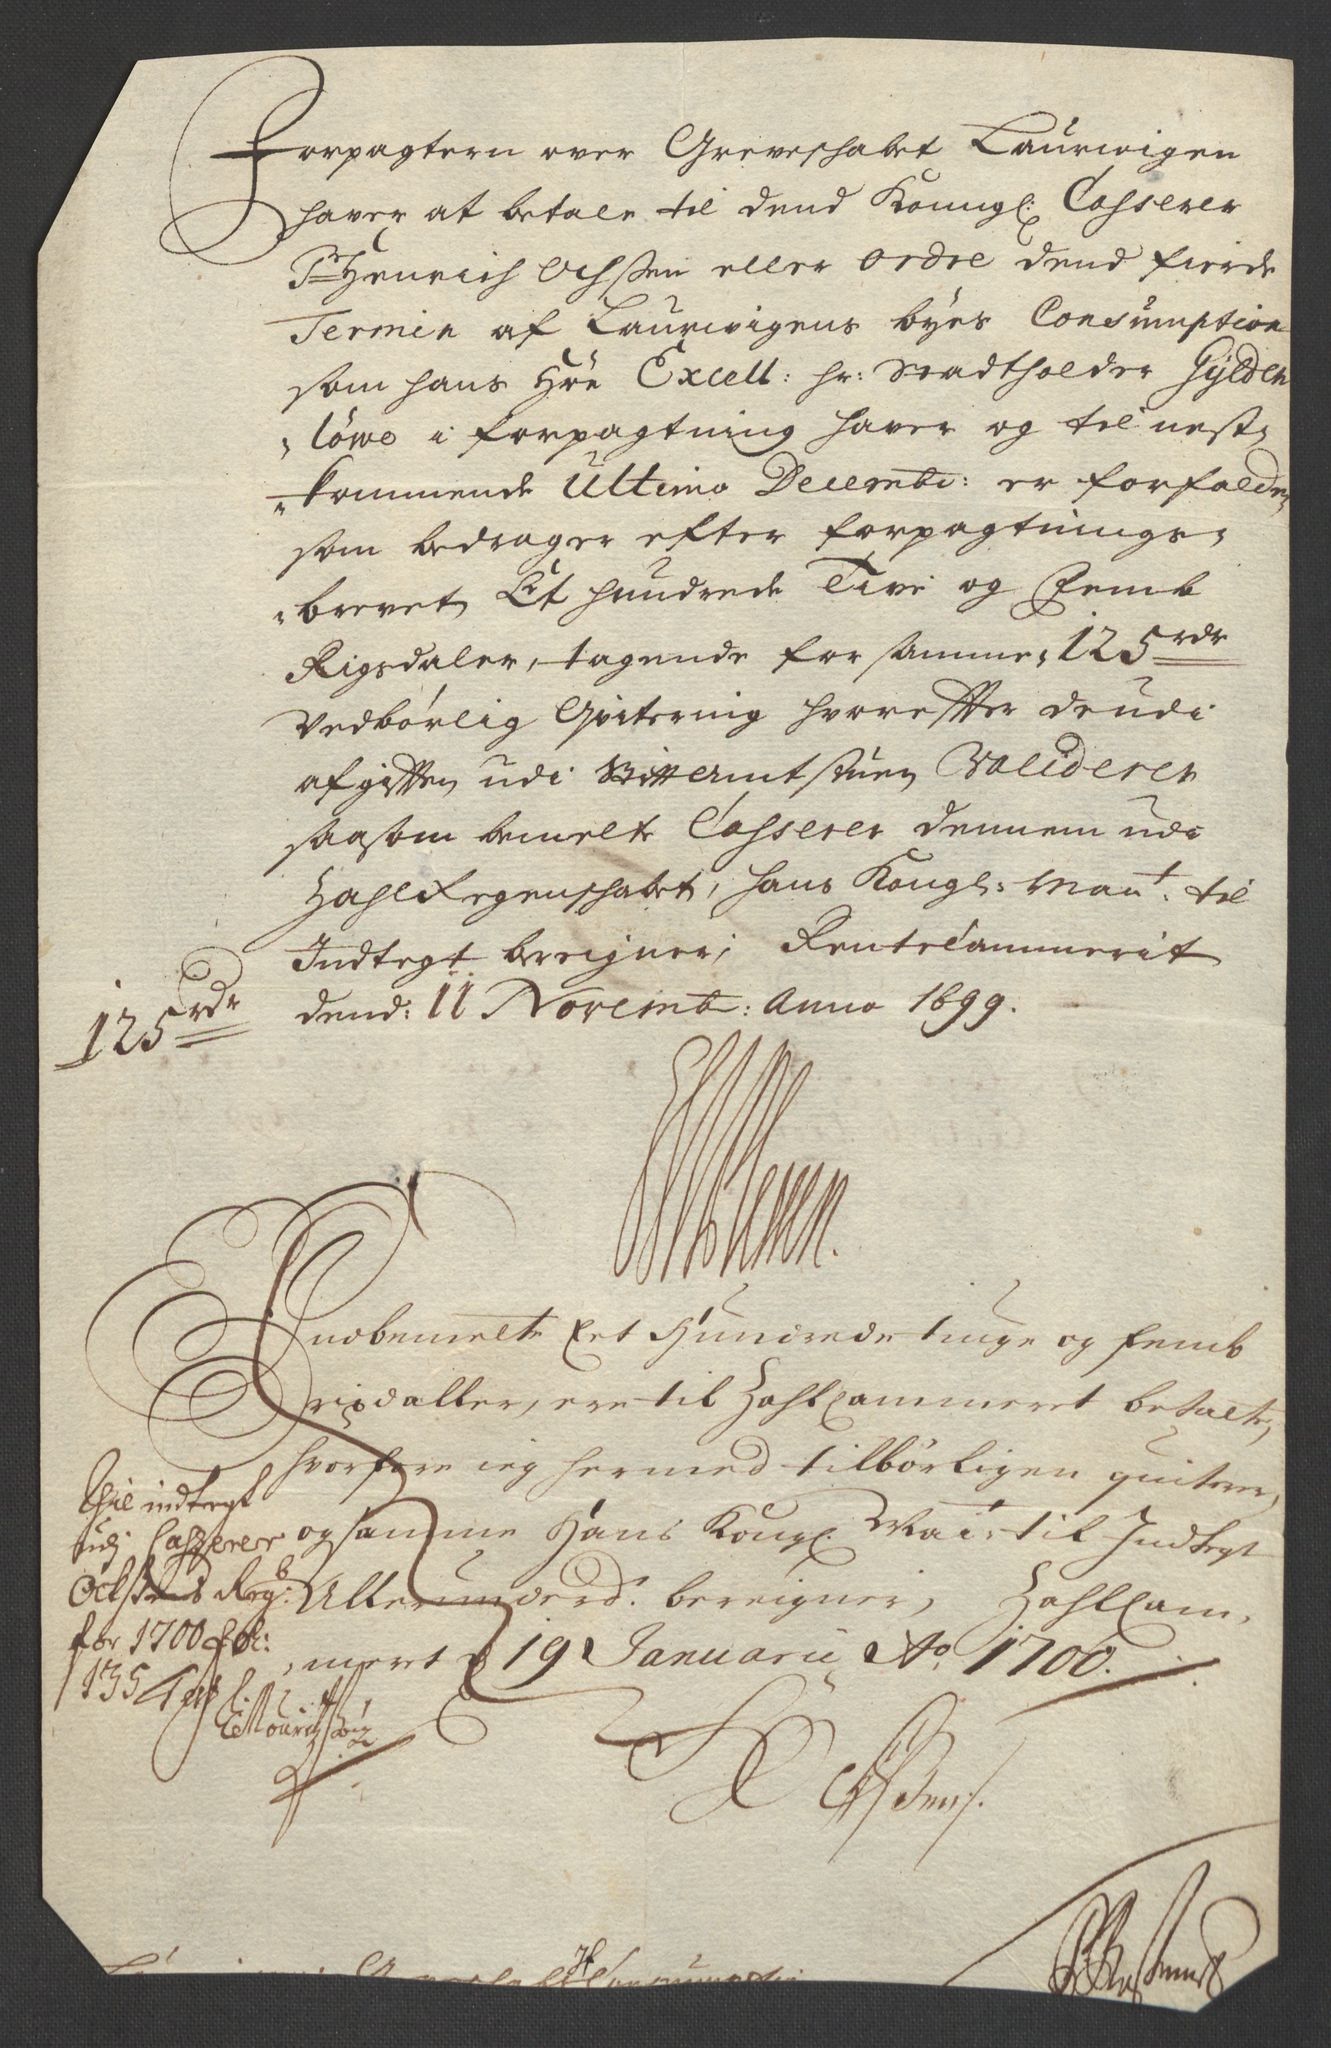 Forpagtern over Grevschabet Laurwigen
haver at betale til dend Konngl: Casserer
Sr Henrich Ochssen eller ordre dend fierde
Termin af Laurwigens byes Consumption
som hans Høe Excell: hr: Stadtholder Gylden
"löwe i forpagtning haver og til nest"
"kommende Ultimo Decembr: er forfalden,
som bedrager efter forpagtnings"
"brevet, Et hundrede Tive og Femb
Rigsdaler, tagende for samme, 125 rdr
Vedbørlig Qvitering hvorefter de udi
afgifften udi Amtstuen Valideren
saasom bemelte Casserer dennem udi
ZahlRegenschabet, hans Kongl: Mayt. til
Indtegt bereigner, Rentecammerit
dend: 11 Novemb: Anno 1699.
125 rdr
Indbemelte Eet Hundrede tiuge og femb
rixdaller, ere til ZahlCammeret betalte,
hvorfore ieg hermed tilbørligen quiterer,
og samme Hans Kongl Mait: til Indtegt
Allerunderd: bereigner, ZahlCam-
meret d 19 Januarii Ao 1700.
HOchssen:/.
Thil indtegt
udj Casserer
Ochssens Regb:
for 1700 fol:
135